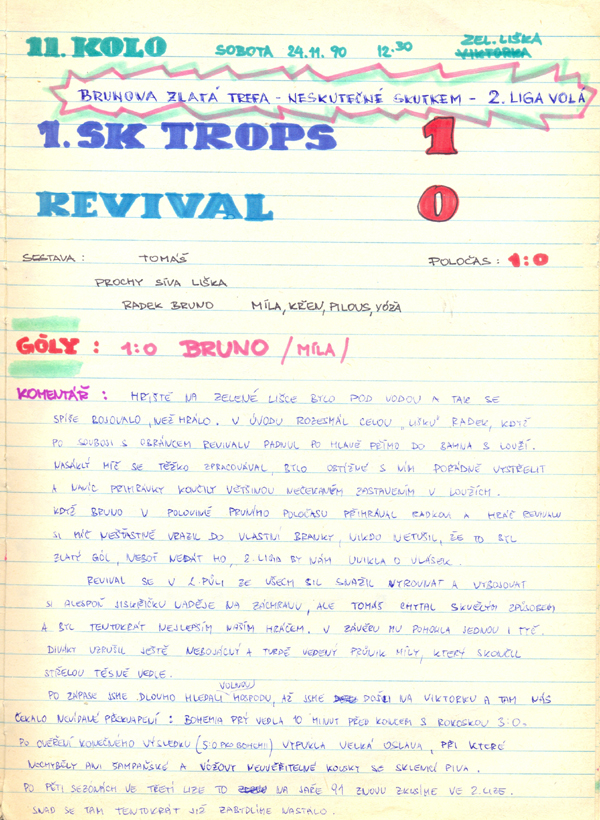 11. KOLO SOBOTA 24.11.90 12.30 ZEL. LIŠKA
VIKTORKA
BRUNOVA ZLATÁ TREFA - NESKUTEČNÉ SKUTKEM - 2. LIGA VOLÁ
1. SK TROPS 1
REVIVAL 0
SESTAVA : TOMÁŠ POLOČAS : 1:0
PROCHY SÍVA LIŠKA
RADEK BRUNO MÍLA, KŘEN, PILOUS, VÓŽA
GÓLY : 1:0 BRUNO / MÍLA /
KOMENTÁŘ : HŘIŠTĚ NA ZELENÉ LIŠCE BYLO POD VODOU A TAK SE
SPÍŠE BOJOVALO, NEŽ HRÁLO. V ÚVODU ROZESMÁL CELOU „LIŠKU" RADEK, KDYŽ
PO SOUBOJI S OBRÁNCEM REVIVALU PADNUL PO HLAVĚ PŘÍMO DO BAHNA S LOUŽÍ.
NASÁKLÝ MÍČ SE TĚŽKO ZPRACOVÁVAL, BYLO OBTÍŽNÉ S NÍM POŘÁDNĚ VYSTŘELIT
A NAVÍC PŘIHRÁVKY KONČILY VĚTŠINOU NEČEKANÝM ZASTAVENÍM V LOUŽÍCH.
KDYŽ BRUNO V POLOVINĚ PRVNÍHO POLOČASU PŘIHRÁVAL RADKOVI A HRÁČ REVIVALU
SI MÍČ NEŠŤASTNĚ VRAZIL DO VLASTNÍ BRANKY, NIKDO NETUŠIL, ŽE TO BYL
ZLATÝ GÓL, NEBOŤ NEDÁT HO, 2. LIGA BY NÁM UNIKLA O VLÁSEK.
REVIVAL SE V 2. PŮLI ZE VŠECH SIL SNAŽIL VYROVNAT A VYBOJOVAT
SI ALESPOŇ JISKŘIČKU NADĚJE NA ZÁCHRANU, ALE TOMÁŠ CHYTAL SKVĚLÝM ZPŮSOBEM
A BYL TENTOKRÁT NEJLEPŠÍM NAŠÍM HRÁČEM. V ZÁVĚRU MU POMOHLA JEDNOU I TYČ.
DIVÁKY VZRUŠIL JEŠTĚ NEBOJÁCNÝ A TVRDĚ VEDENÝ PRŮNIK MÍLY, KTERÝ SKONČIL
STŘELOU TĚSNĚ VEDLE.
PO ZÁPASE JSME DLOUHO HLEDALI VOLNOU HOSPODU, AŽ JSME DOŠLI NA VIKTORKU A TAM NÁS
ČEKALO NEVÍDANÉ PŘEKVAPENÍ : BOHEMIA PRÝ VEDLA 10 MINUT PŘED KONCEM S ROKOSKOU 3:0.
PO OVĚŘENÍ KONEČNÉHO VÝSLEDKU (5:0 PRO BOHEMII) VYPUKLA VELKÁ OSLAVA, PŘI KTERÉ
NECHYBĚLY ANI ŠAMPAŇSKÉ A VÓŽOVY NEUVĚŘITELNÉ KOUSKY SE SKLENICÍ PIVA.
PO PĚTI SEZÓNÁCH VE TŘETÍ LIZE TO NA JAŘE 91 ZNOVU ZKUSÍME VE 2. LIZE.
SNAD SE TAM TENTOKRÁT JIŽ ZABYDLÍME NASTÁLO.